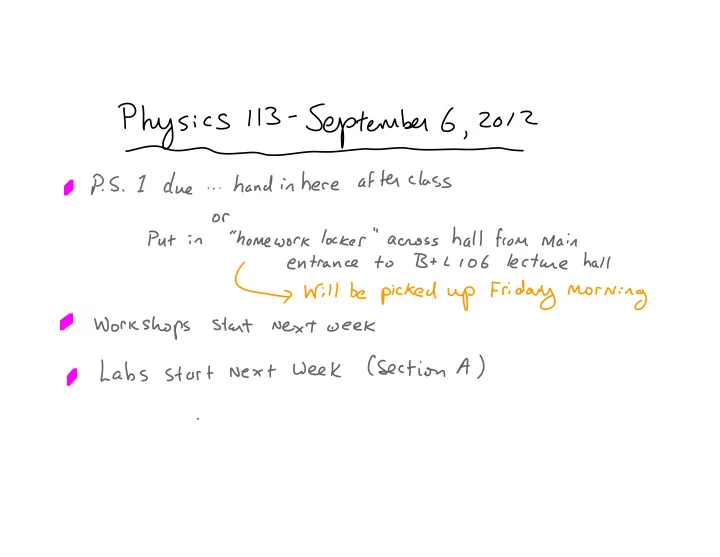 Physics 113 - September 6, 2012
P.S. 1 due ... hand in here after class
or
Put in "homework locker" across hall from main
entrance to B+L 106 lecture hall
Will be picked up Friday morning
Workshops start next week
Labs start next week (Section A)